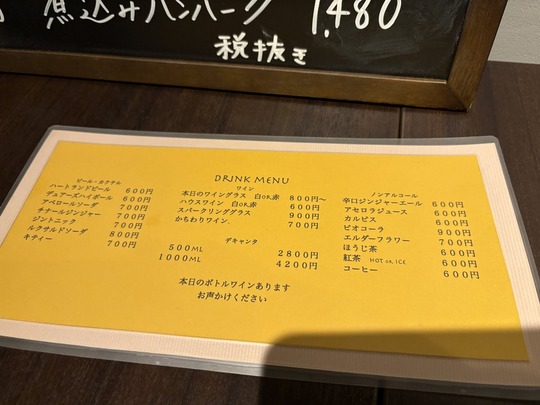 煮込みハンバーグ 1,480
税抜き
DRINK MENU
ビール・カクテル
ハートランドビール 600円
デュアーズハイボール 600円
アペロールソーダ 700円
チナールジンジャー 700円
ジントニック 700円
ルクサルドソーダ 800円
キティー 700円
ワイン
本日のワイングラス 白OR赤 800円〜
ハウスワイン 白OR赤 600円
スパークリンググラス 900円
かちわりワイン、 700円
デキャンタ
500ML 2800円
1000ML 4200円
本日のボトルワインあります
お声かけください
ノンアルコール
辛口ジンジャーエール 600円
アセロラジュース 600円
カルピス 600円
ビオコーラ 900円
エルダーフラワー 700円
ほうじ茶 600円
紅茶 HOT OR ICE 600円
コーヒー 600円